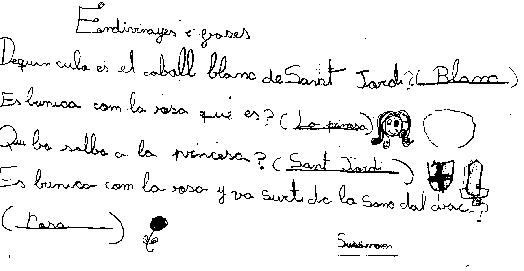 Endivinayes i frases
Dequin culo es el caball blanc de Sant Jordi? (Blanc)
Es bunica com la rosa qué es? (La pinsesa)
Qui ba salba a la princesa? (Sant Jordi)
Es bunica com la rosa y va surti de la sang dal drac?
(rosa)